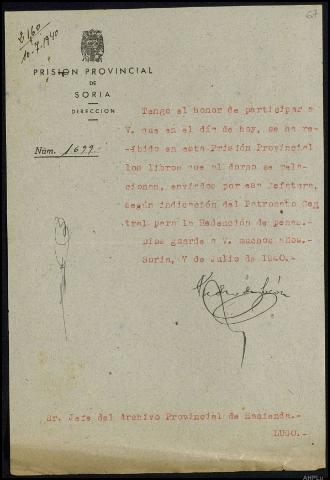 67
B 160
10-7-1940
PRISION PROVINCIAL
DE
SORIA
DIRECCION
Núm. 1699.-
Tengo el honor de participar a
V. que en el día de hoy, se ha re-
cibido en esta Prisión Provincial
los libros que al dorso se rela-
cionan, enviados por esa Jefatura,
según indicación del Patronato Cen
tral para la Redención de penas.-
Dios guarde a V. muchos años.-
Soria, 7 de Julio de 1940.-
Sr. Jefe del Archivo Provincial de Hacienda.-
LUGO.-
AHPLu